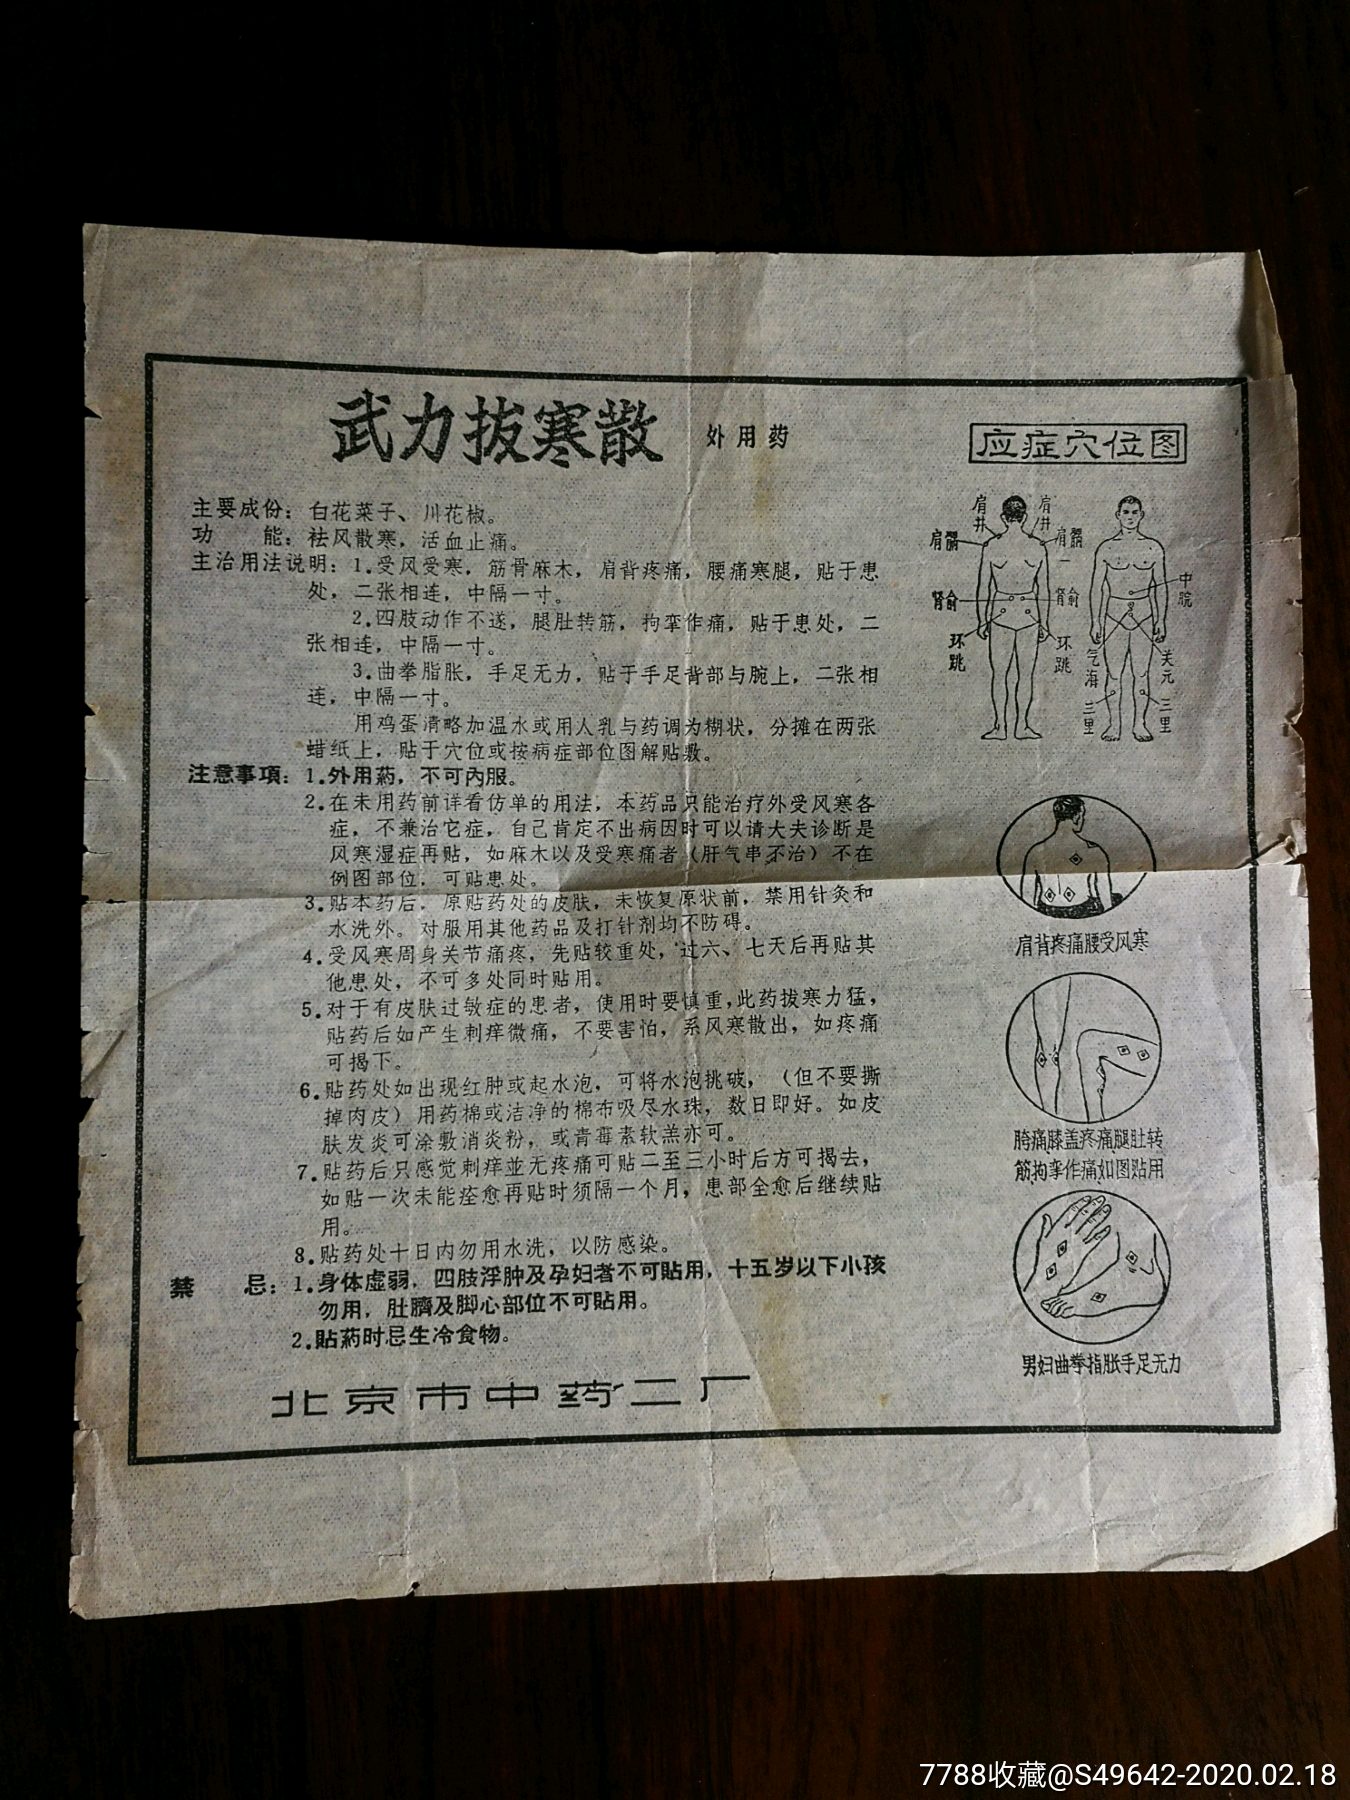 武力拔寒散 外用药
主要成份：白花菜子、川花椒。
功　　能：祛风散寒，活血止痛。
主治用法说明：1.受风受寒，筋骨麻木，肩背疼痛，腰痛寒腿，贴于患
处，二张相连，中隔一寸。
2.四肢动作不遂，腿肚转筋，拘挛作痛，贴于患处，二
张相连，中隔一寸。
3.曲拳脂胀，手足无力，贴于手足背部与腕上，二张相
连，中隔一寸。
用鸡蛋清略加温水或用人乳与药调为糊状，分摊在两张
蜡纸上，贴于穴位或按病症部位图解贴敷。
注意事項：1.外用葯，不可内服。
2.在未用药前详看仿单的用法，本药品只能治疗外受风寒各
症，不兼治它症，自己肯定不出病因时可以请大夫诊断是
风寒湿症再贴，如麻木以及受寒痛者（肝气串不治）不在
例图部位，可贴患处。
3.贴本药后，原贴药处的皮肤，未恢复原状前，禁用针灸和
水洗外。对服用其他药品及打针剂均不防碍。
4.受风寒周身关节痛疼，先贴较重处，过六、七天后再贴其
他患处，不可多处同时贴用。
5.对于有皮肤过敏症的患者，使用时要慎重，此药拔寒力猛，
贴药后如产生刺痒微痛，不要害怕，系风寒散出，如疼痛
可揭下。
6.贴药处如出现红肿或起水泡，可将水泡挑破，（但不要撕
掉肉皮）用药棉或洁净的棉布吸尽水珠，数日即好。如皮
肤发炎可涂敷消炎粉，或青霉素软羔亦可。
7.贴药后只感觉刺痒並无疼痛可贴二至三小时后方可揭去，
如贴一次未能痊愈再贴时须隔一个月，患部全愈后继续贴
用。
8.贴药处十日内勿用水洗，以防感染。
禁　　忌：1.身体虚弱，四肢浮肿及孕妇者不可貼用，十五岁以下小孩
勿用，肚臍及脚心部位不可貼用。
2.貼葯时忌生冷食物。
北京市中药二厂
应症穴位图
肩井
肩井
肩髃
肩髃
肾俞
肾俞
环跳
环跳
中脘
气海
关元
三里
三里
肩背疼痛腰受风寒
胯痛膝盖疼痛腿肚转
筋拘挛作痛如图贴用
男妇曲拳指胀手足无力
7788收藏@S49642-2020.02.18